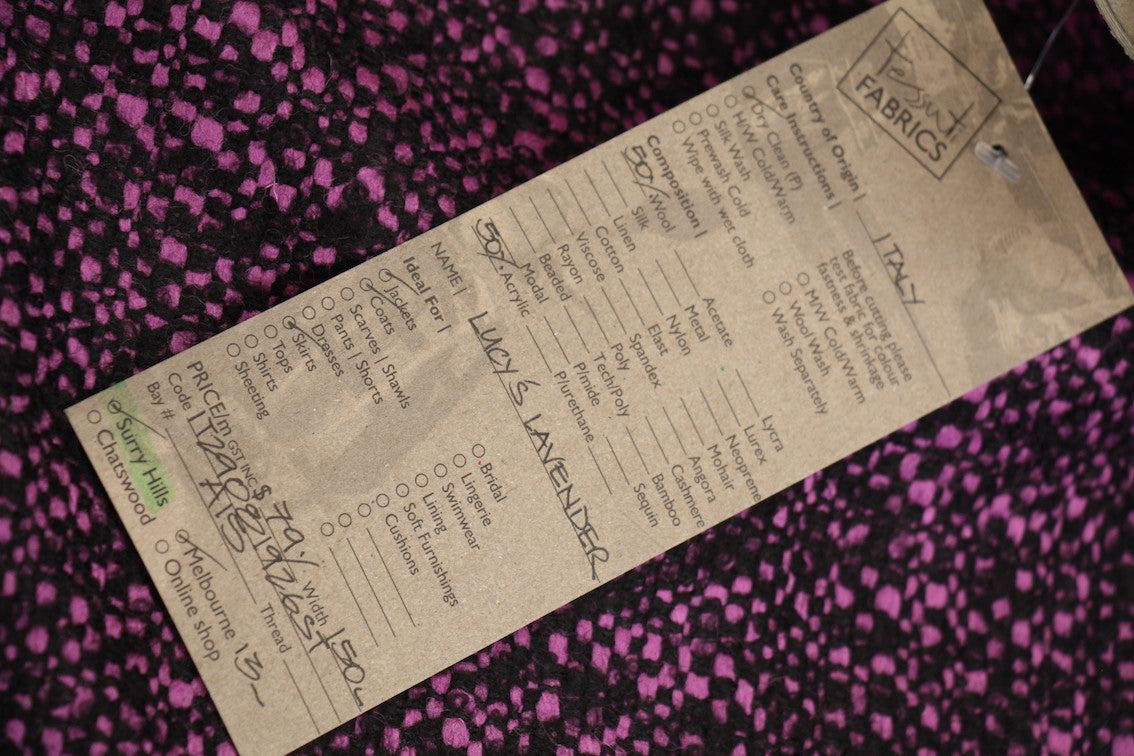 Tessuti
FABRICS
Country of Origin | ITALY
Care Instructions |
Before cutting please
test fabric for colour
fastness & shrinkage
Dry Clean (P)
H/W Cold/Warm
Silk Wash
Prewash Cold
Wipe with wet cloth
M/W Cold/Warm
Wool Wash
Wash Separately
Composition |
50% Wool
Silk
Linen
Cotton
Viscose
Rayon
Beaded
Modal
50% Acrylic
Acetate
Metal
Nylon
Elast
Spandex
Poly
Tech/Poly
P/mide
P/urethane
Lycra
Lurex
Neoprene
Mohair
Angora
Cashmere
Bamboo
Sequin
NAME | LUCY'S LAVENDER
Ideal For |
Jackets
Coats
Scarves | Shawls
Pants | Shorts
Dresses
Skirts
Tops
Shirts
Sheeting
Bridal
Lingerie
Swimwear
Lining
Soft Furnishings
Cushions
PRICE/m GST INC $ 79./ Width 150
Code
Bay #
Thread
Surry Hills
Chatswood
Melbourne 13
Online shop